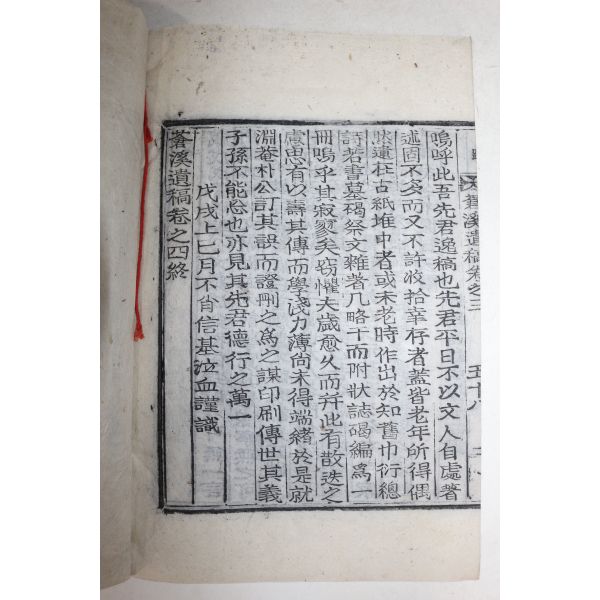 溪遺稿卷之
五十八
嗚呼此吾先君逸稿也先君平日不以文人自處著
述固不多而又不許收拾幸存者蓋皆老年所得偶
然遺在古紙堆中者或未老時作出於知舊巾衍總
詩若書墓碣祭文雜著凡略干而附狀誌碣編爲一
冊嗚乎其寂寥矣窃懼夫歲愈久而并此有散迭之
慮思有以壽其傳而學淺力薄尚未得端緖於是就
淵菴朴公訂其誤而證刪之爲之謀印刷傳世其義
子孫不能忘也亦見其先君德行之萬一
戊戌上巳月不肖信基泣血謹識
溪遺稿卷之四終